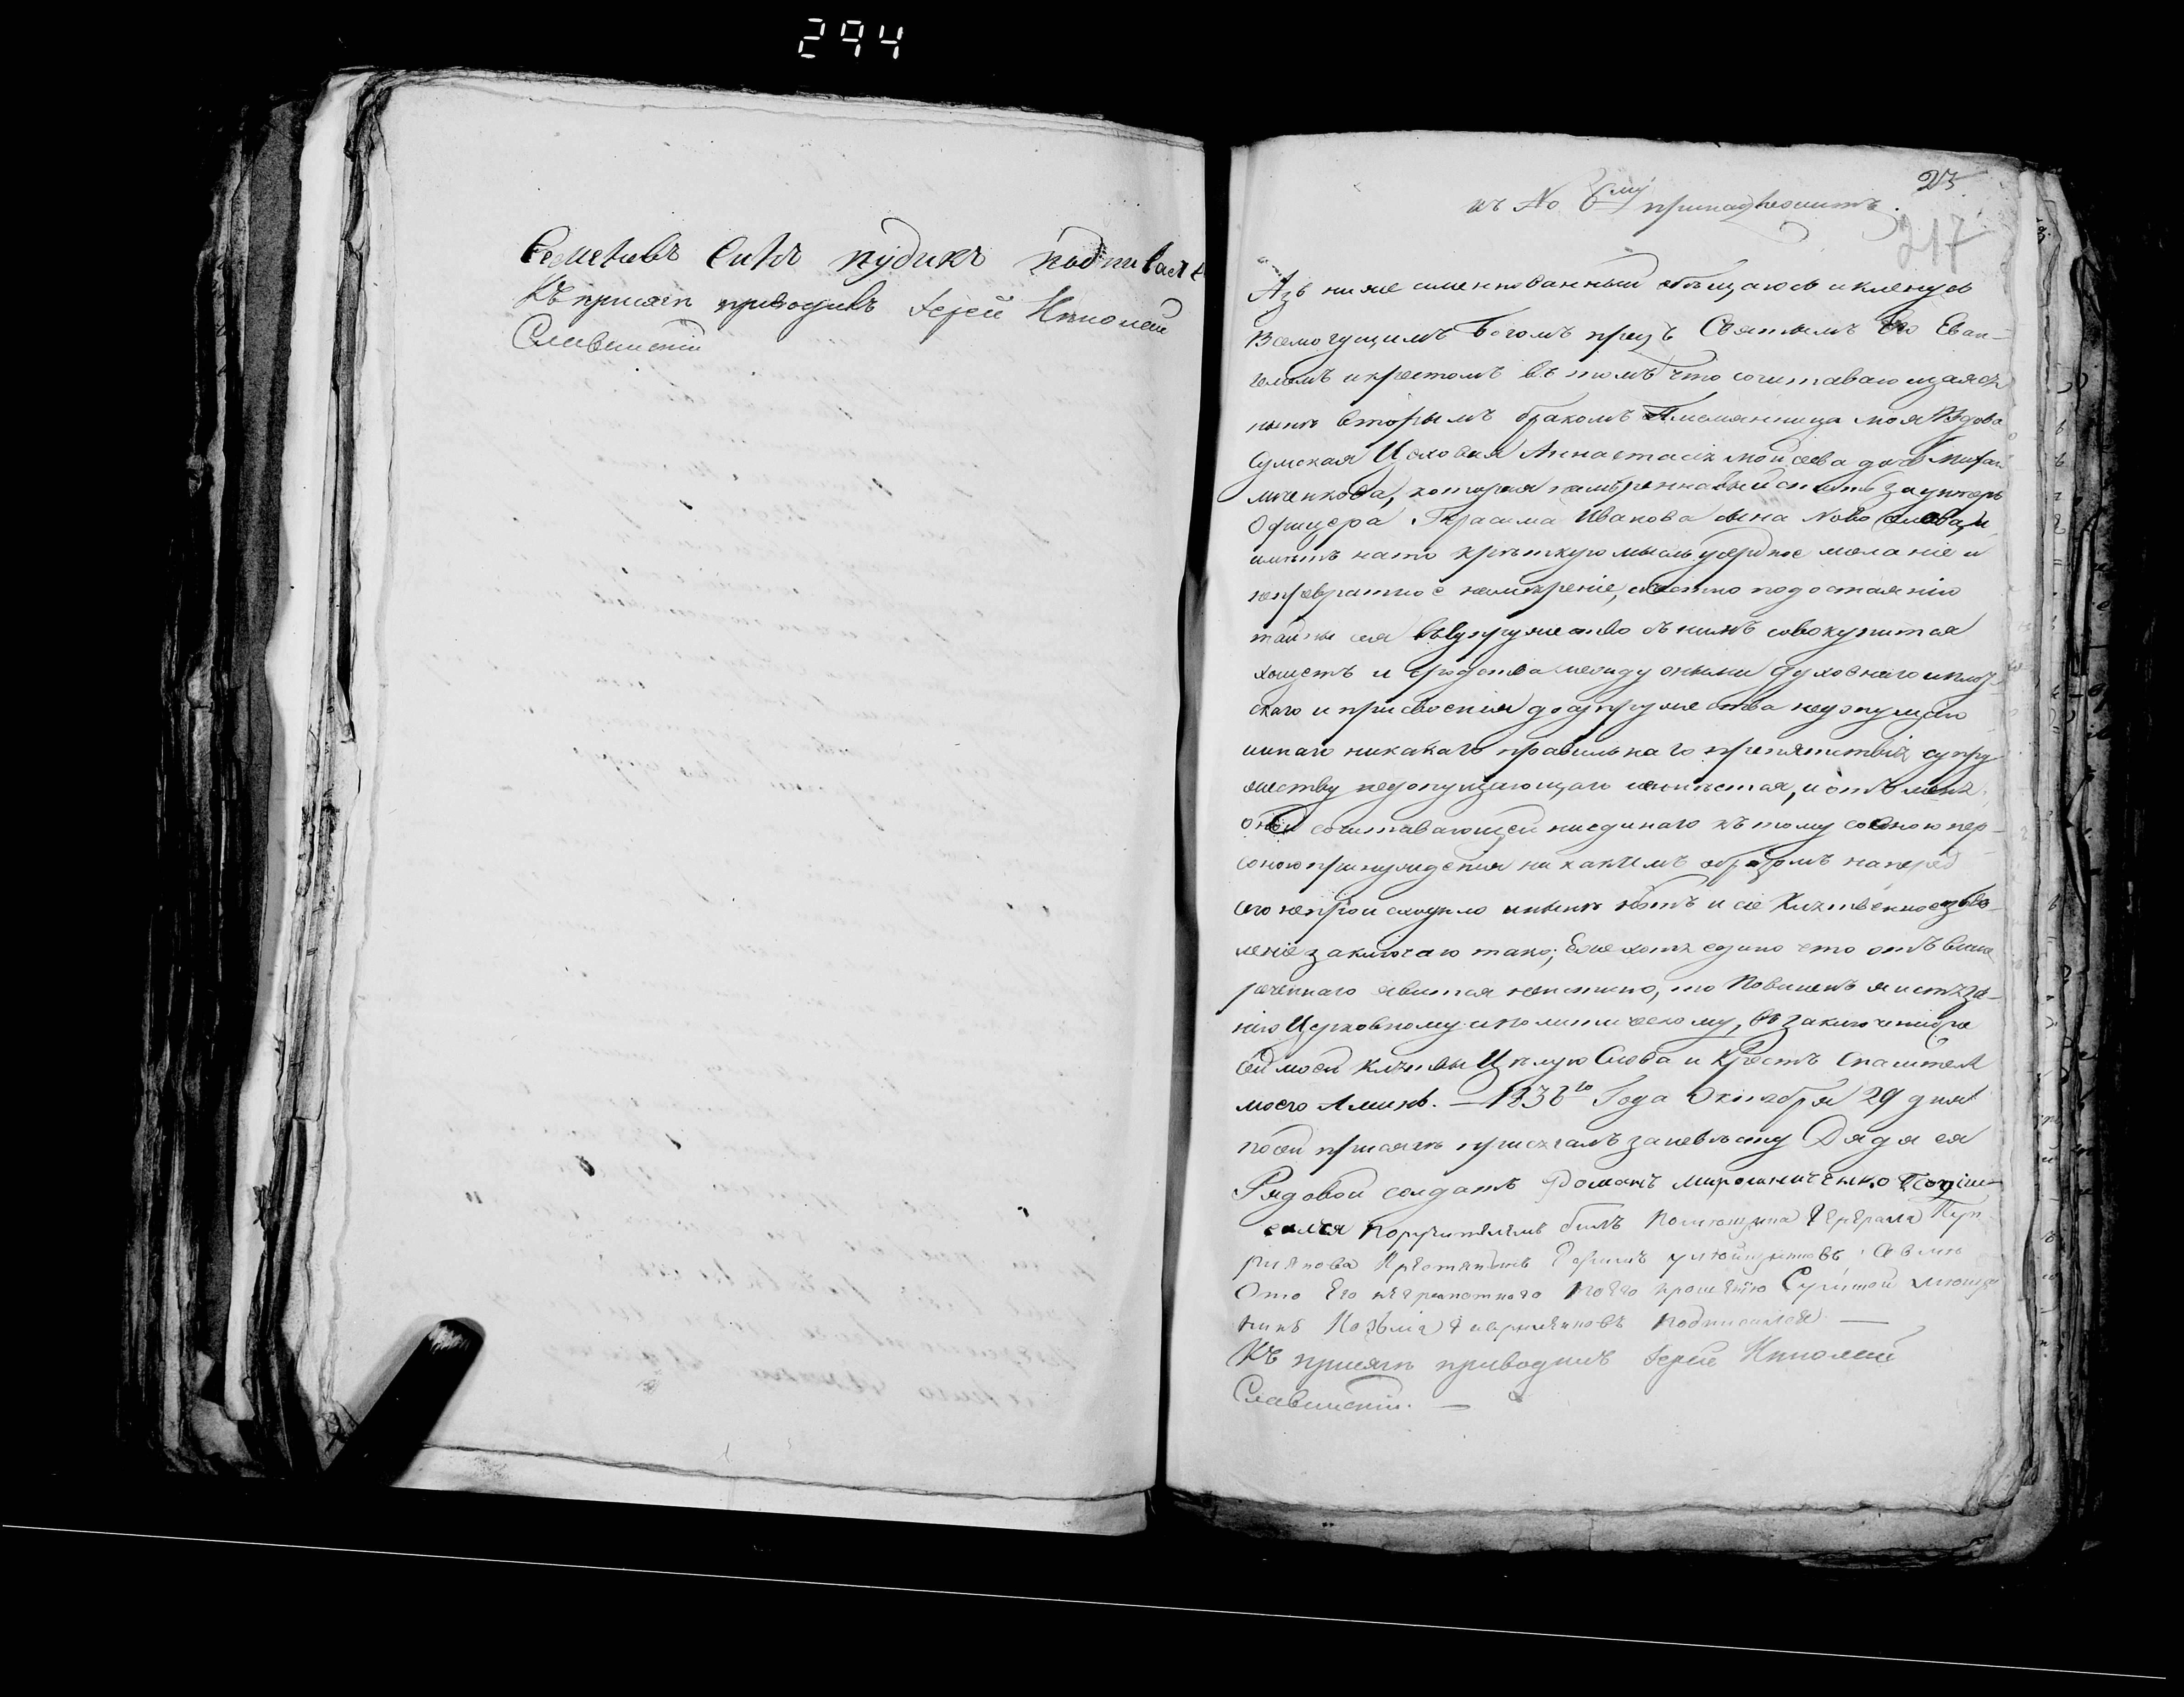 294
Семеновъ Синъ Кудикъ подписался
Къ присягѣ приводилъ Іерей Николай
Славинскій
23.
къ No 6му принадлежитъ.
217
Азъ ниже имменнованный обѣщаюсь и кленусь
Всемогущимъ Богомъ предъ Святымъ Его Еван-
геліемъ и крестомъ въ томъ что сочитаваю щаяся
нынѣ вторымъ бракомъ Племянница моя Вдова
Сумская Цеховая Анастасія Моисеева дочь
которая намѣренна за унтеръ
Офицера Герасима Иванова сына Ново
имѣетъ на то крѣпкую мысль усердное желаніе и
непревратное намѣреніе, по достоянію
тайны сея въ супружество съ нимъ совокупится
хощетъ и сродства между оными духовнаго и плот
скаго и присвоенія до супружества недопущаю
иннаго никакаго правильнаго препятствія супру
жеству недопущающаго неимѣется, и отъ меня
оной сочитавающей ниединаго къ тому со оною пер-
соною принуждения ни какимъ образомъ напередъ
сего непроисходило и нынѣ нѣтъ и сіе Клятвенное
заключаю тако; Еже хотя едино что отъ выше
реченнаго явится неистино, то Повиненъ я истяза-
нію Церковному и политическому, въ заключеніе
сей моей клятвы Цѣлую Слова и Крестъ Спасителя
моего Аминь. — 1836го Года Октября 29 дня
По сей присягѣ присягалъ за невѣсту Дядя ея
Рядовой солдатъ Романъ Мирошниченко
Поручителемъ билъ Генерала
Крестянинъ
Его неграмотнаго Его прошенію Сумской
Козьма подписался —
Къ присягѣ приводилъ Іерей Николай
Славинскій. —